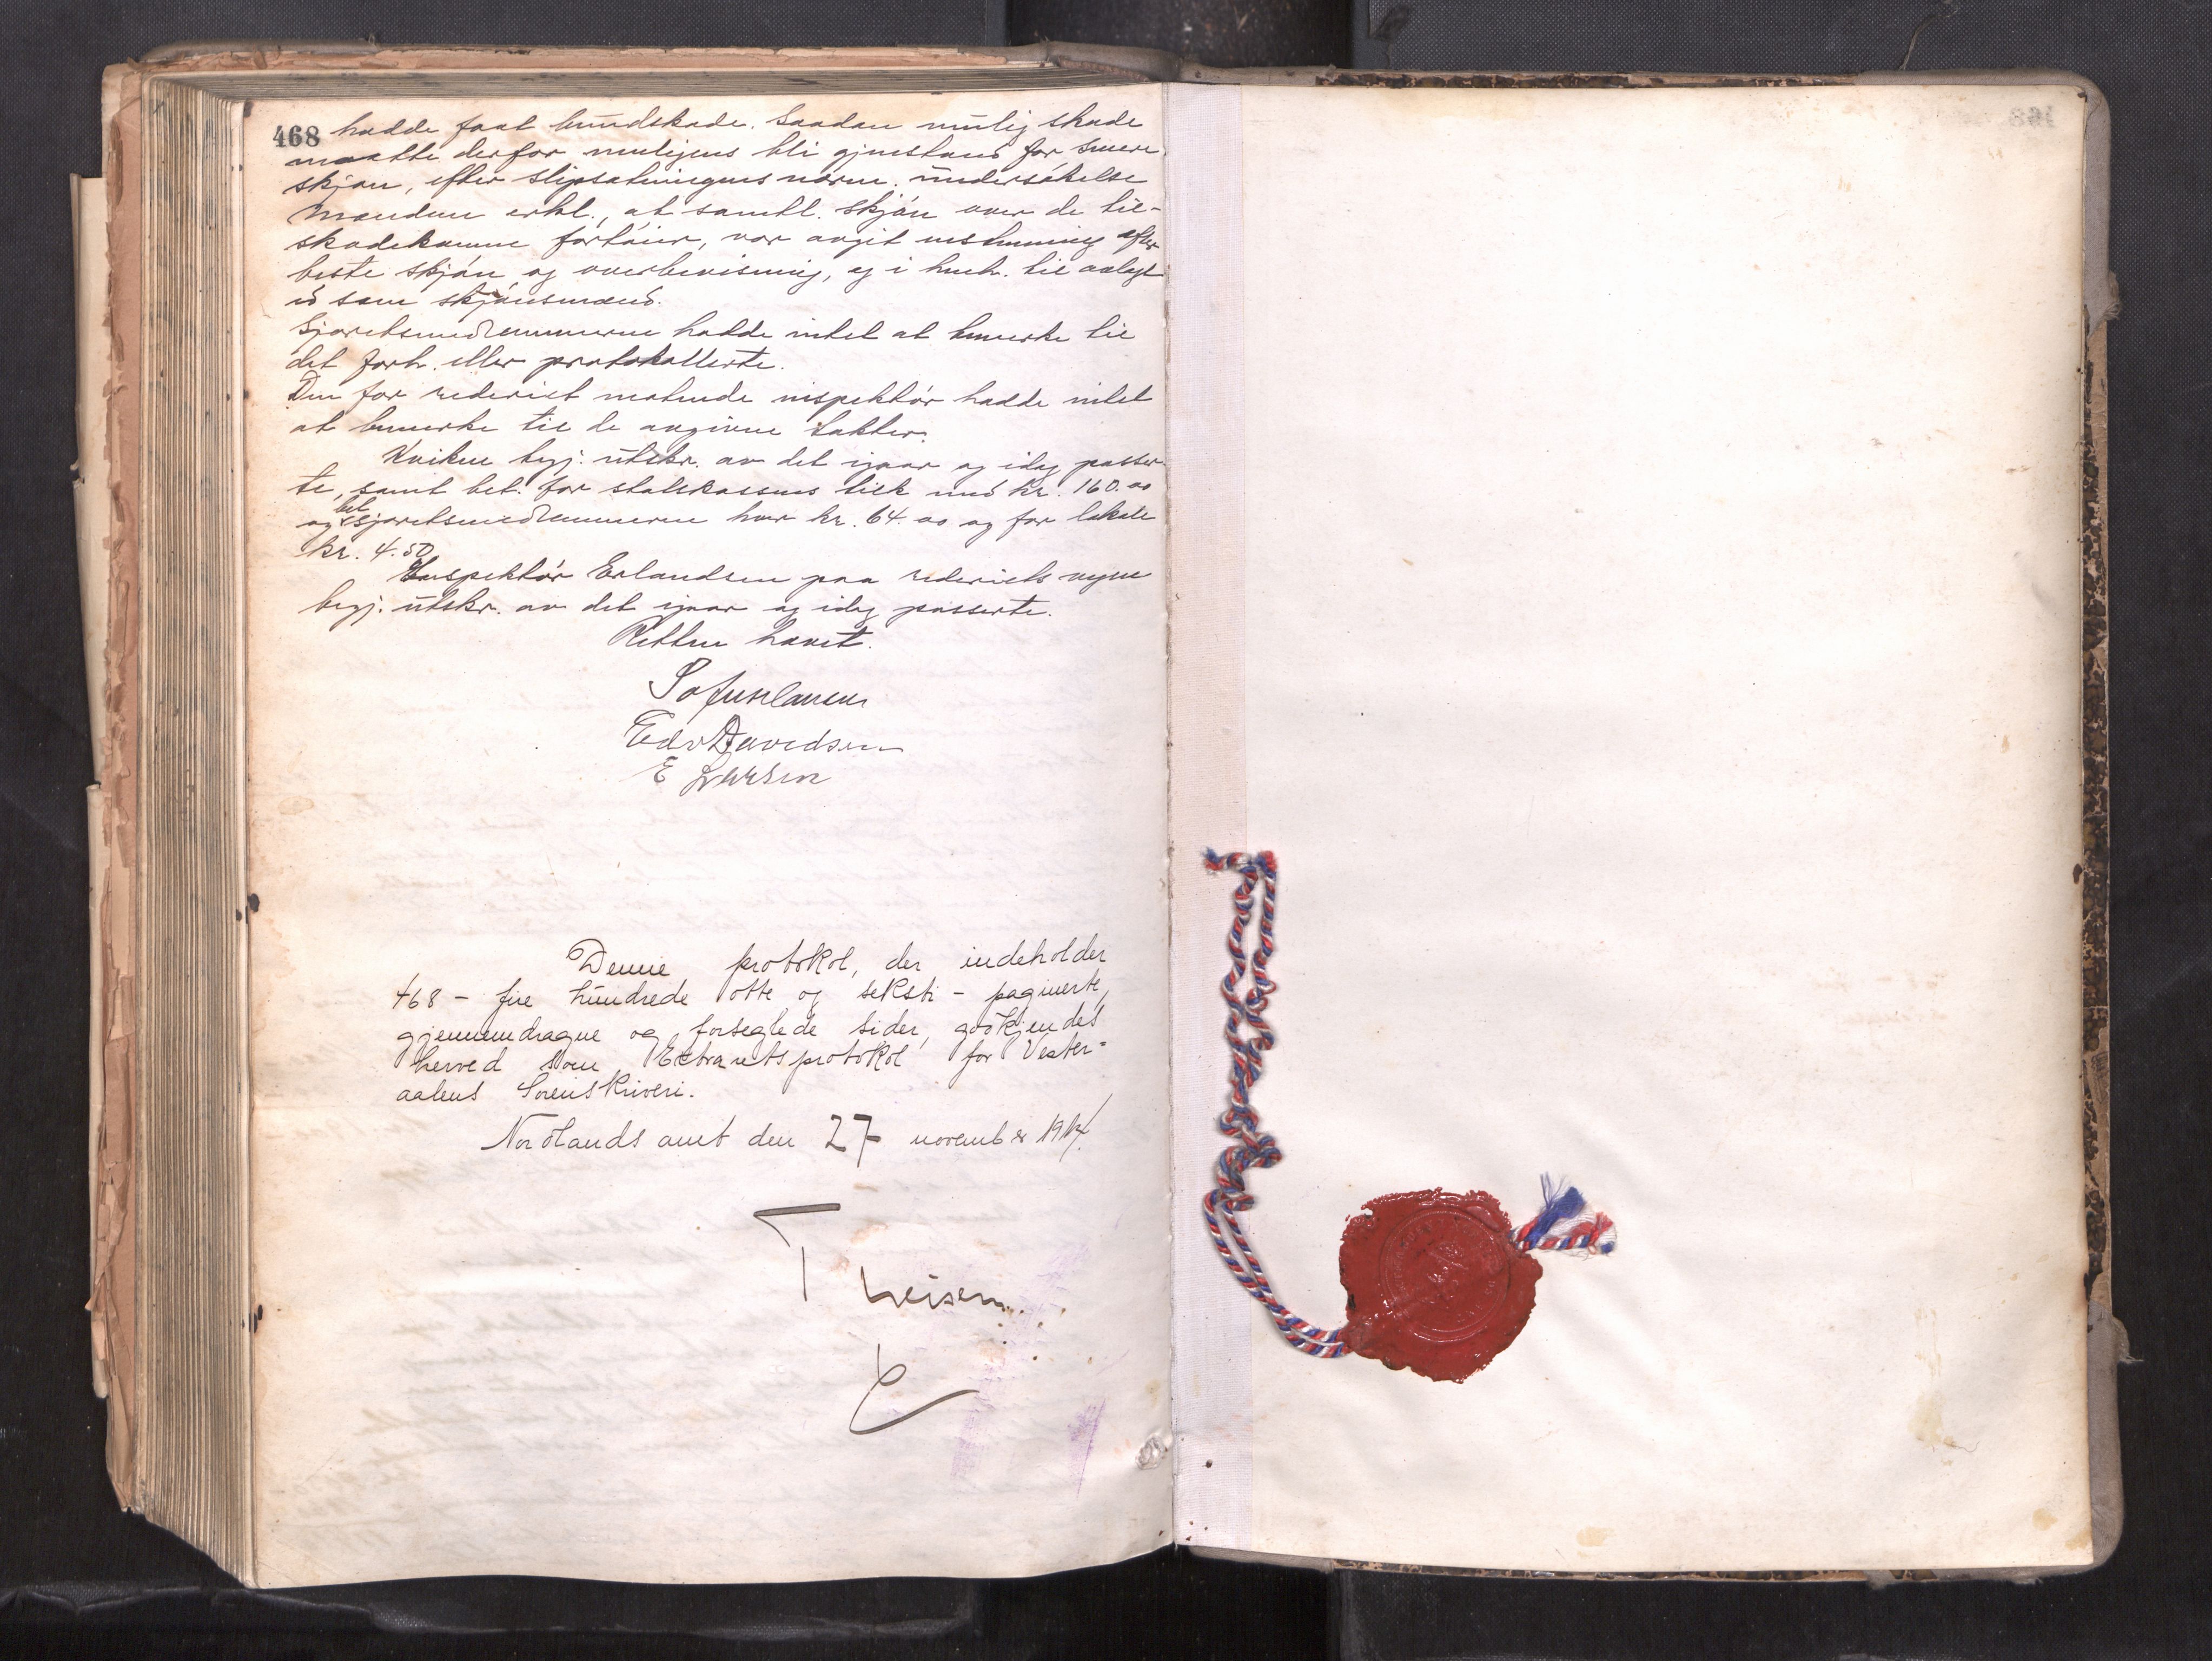 468 hadde faat bundskade. Saadan mulig skade
maatte derfor muligens bli gjenstand for senere
skjøn, efter slipsætningens nærm. undersøkelse
Mændene erkl., at samtl. skjøn over de til-
skadekomne fortøier, var avgit efter
beste skjøn og overbevisning, og i henh. til avlagt
ed som skjønsmænd.
Sjøretsmedlemmerne hadde intet at bemerke til
det forh. eller protokollerte.
Den for rederiet møtende inspektør hadde intet
at bemerke til de avgivne takster.
begj. utskr. av det igaar og idag passer-
te, samt bet. for statskassens tilk med kr. 160.00
og bet sjøretsmedlemmerne hver kr. 64.00 og for lokale
kr. 4.50
Inspektør Erlandsen paa rederiets vegne
begj. utskr. av det igaar og idag passerte.
Retten hævet.
Edv Davidsen
E Larsen
Denne protokol, der indeholder
468 - fire hundrede otte og seksti - paginerte,
gjennemdragne og forseglede sider, godkjendes
herved som Extraretsprotokol for Vester-
aalens Sorenskriveri.
Nordlands amt den 27 november 1914.
Theisen
468